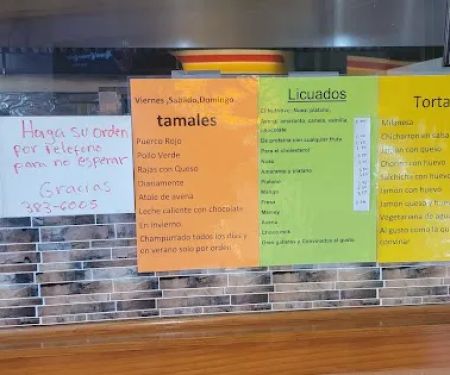 Haga su orden
por telefono
para no esperar
Gracias
383-6005
Viernes ,Sabado,Domingo
tamales
Puerco Rojo
Pollo Verde
Rajas con Queso
Diariamente
Atole de avena
Leche caliente con chocolate
En Invierno
Champurrado todos los dias y
en verano solo por orden
Licuados
El Nutritivo: Nuez, platano,
canela, vainilla
chocolate
De proteina con cualquier fruta
Para el colesterol
Nuez
Amaranto y platano
Platano
Mango
Fresa
Mamey
Avena
Choco milk
Gran galleta y Convinados al gusto
Torta
Milanesa
Chicharron en salsa
con queso
Chorizo con huevo
Salchicha con huevo
Jamon con huevo
Jamon queso y hue
Vegetariana de agua
Al gusto como la qu
convinar